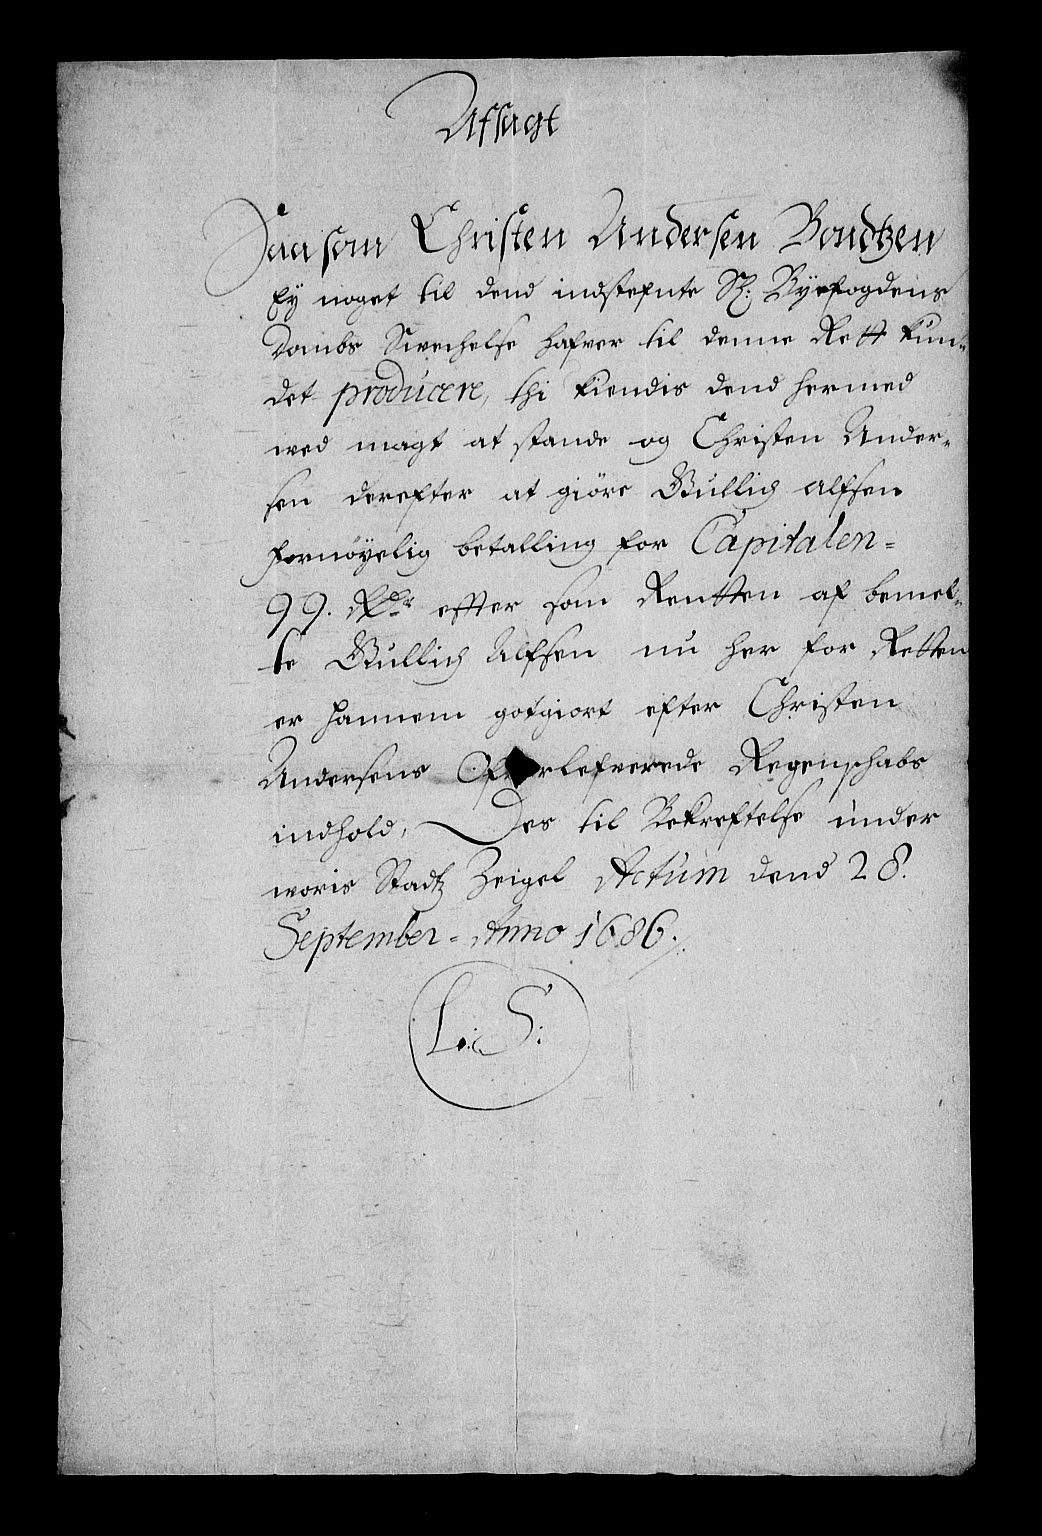 Afsagt
Saasom Christen Andersen Bondtzen
Ey noget til dend indstefnte Sl: Byefogdens
Dombs Svechelse hafver til denne Rett kun-
det producere, thi kiendis dend hermed
wed magt at stande og Christen Ander-
sen derefter at giöre Gullich alfsen
fornöyelig betalling for Capitalen =
99. Rdr efter som Rentten af bemel-
te Gullich Alfsen nu her for Retten
er hannem gotgiort efter Christen
Andersens Ofverlefverede Regenschabs
indhold, Des til Bekreftelse under
woris Stadtz Zeigel Actum dend 28.
September = Anno 1686.
L: S: